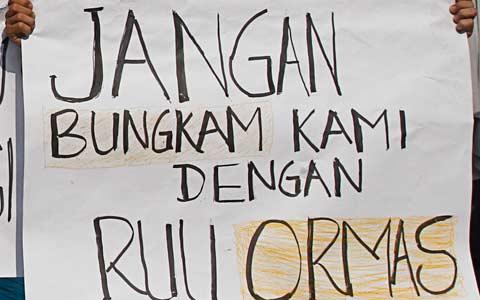 JANGAN
BUNGKAM KAMI
DENGAN
RUU ORMAS